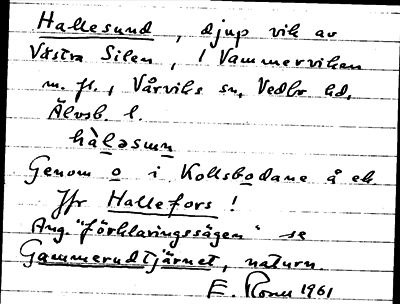 Hallesund, djup vik av
Västra Silen, / Vammerviken
m. fl., Vårviks sn, Vedbo hd,
Älvsb. l.
hàləsun
Genom o i Kollsbodane å ek
Jfr Hallefors!
Ang. "förklaringssägen" se
Gammerudtjärnet, naturn.
E. 1961